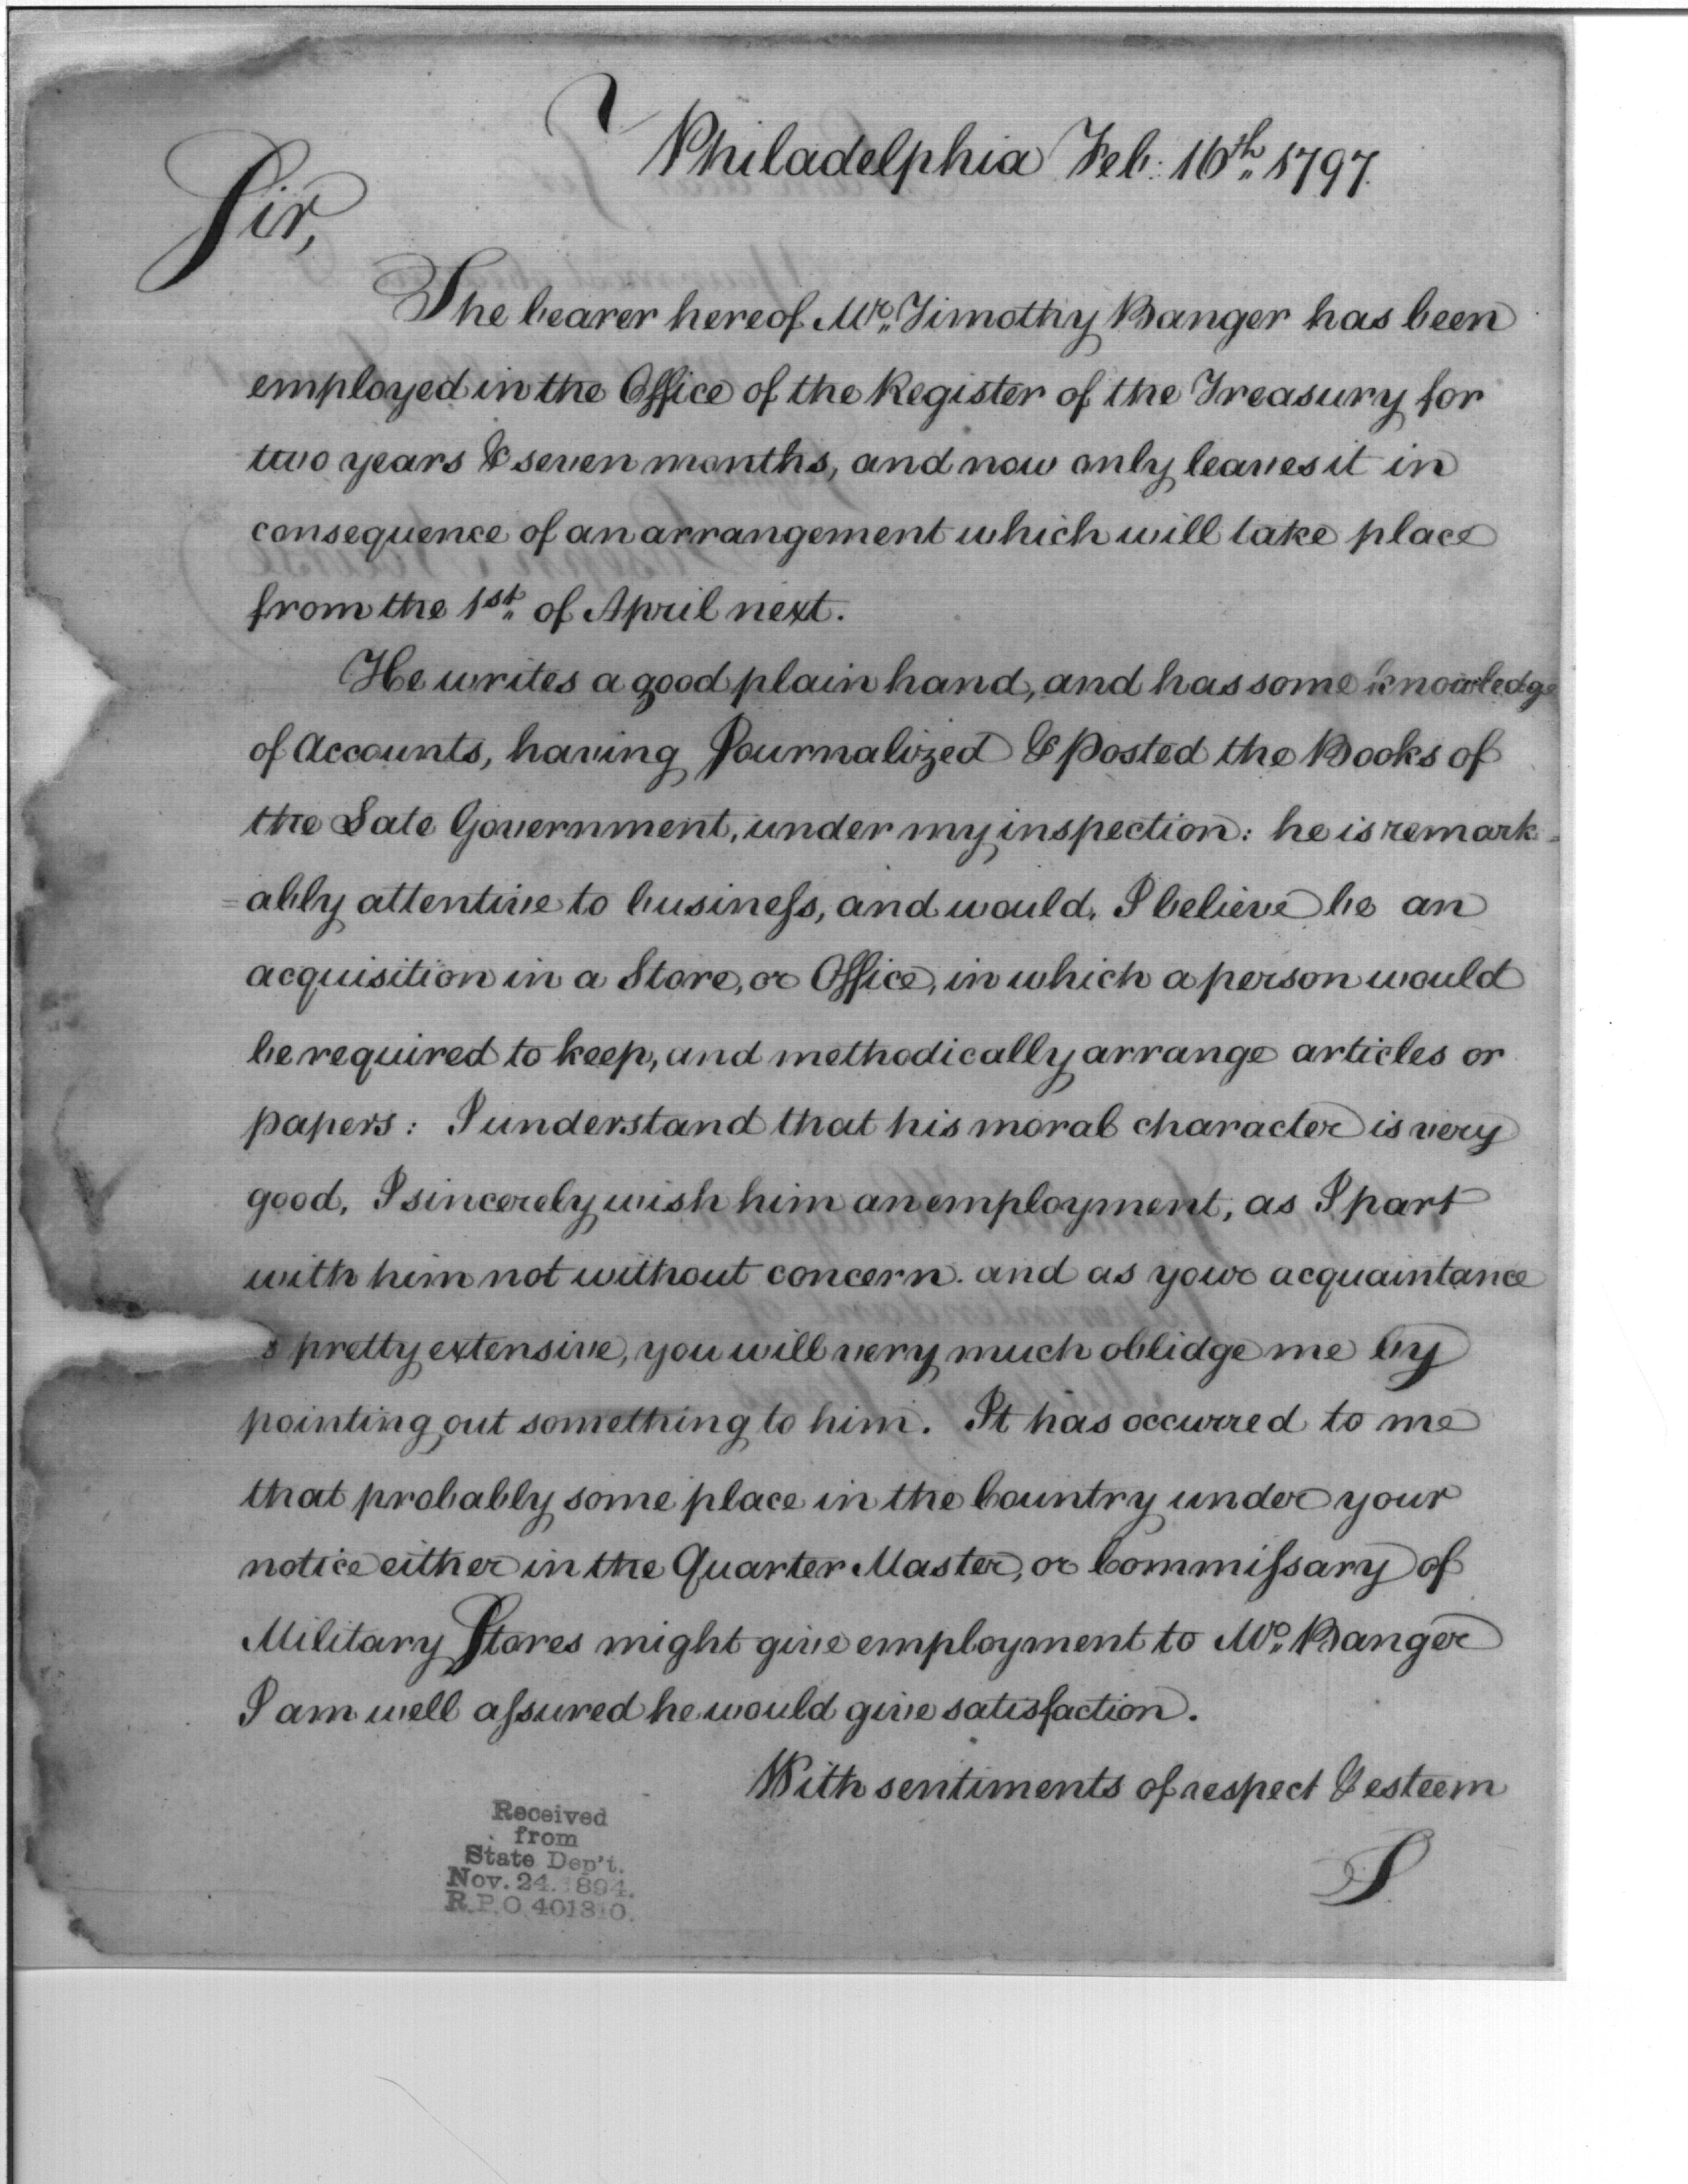 Philadelphia Feb: 16th 1797.
Sir,
The bearer hereof Mr. Timothy Banger has been
employed in the Office of the Register of the Treasury for
two years & seven months, and now only leaves it in
consequence of an arrangement which will take place
from the 1st of April next.
He writes a good plain hand, and has some knowledge
of Accounts, having Journalized & posted the Books of
the Late Government, under my inspection: he is remark=
=ably attentive to business, and would, I believe be an
acquisition in a Store, or Office, in which a person would
be required to keep, and methodically arrange articles or
papers: I understand that his moral character is very
good, I sincerely wish him an employment, as I part
with him not without concern. and as your acquaintance
s pretty extensive, you will very much oblidge me by
pointing out something to him. It has occurred to me
that probably some place in the Country under your
notice either in the Quarter Master, or Commissary of
Military Stores might give employment to Mr. Banger
I am well assured he would give satisfaction.
With sentiments of respect & esteem
S
Received
from
State Dep't.
Nov. 24. 1894.
R.P.O 401310.